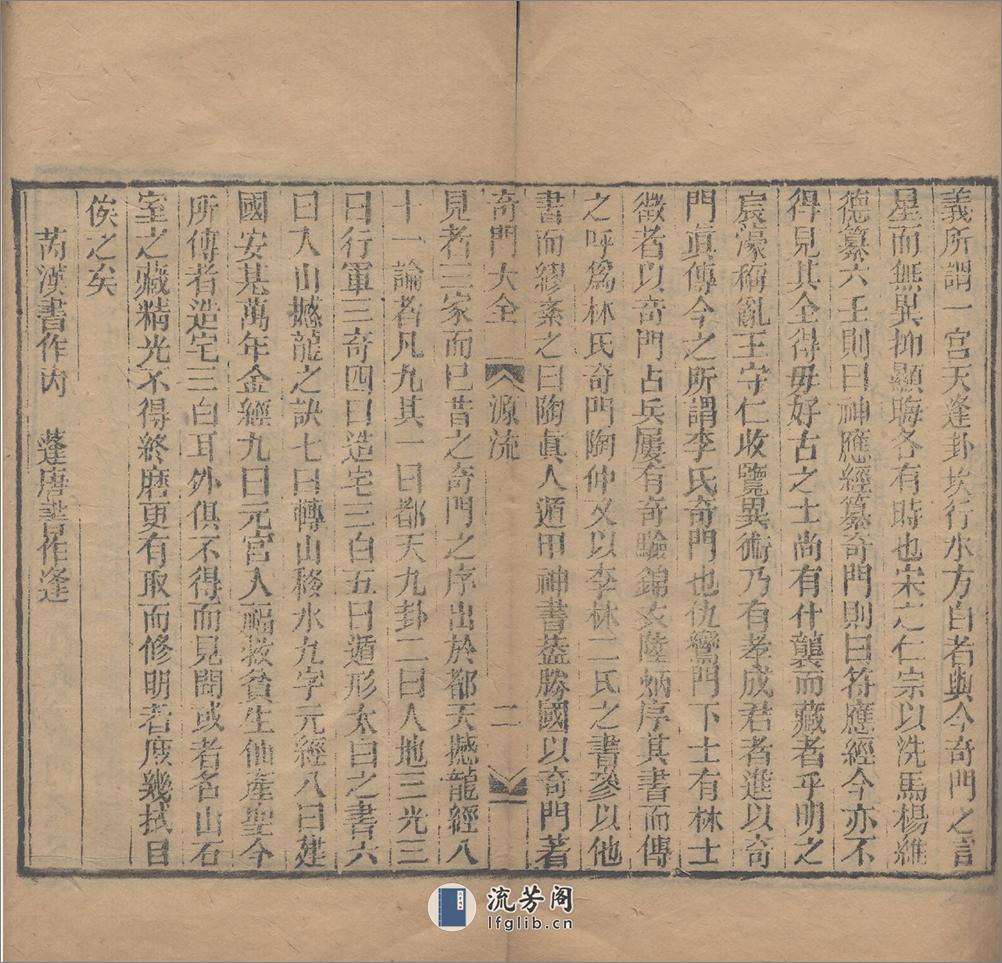 義所謂一宮天蓬卦坎行水方白者與今奇門之言
星而無異抑顯晦各有時也宋之仁宗以洗馬楊維
德纂六壬則曰神應經纂奇門則曰符應經今亦不
得見其全得毋好古之士尚有什襲而藏者乎明之
宸濠稱亂王守仁收覽異術乃有老成君者進以奇
門眞傳今之所謂李氏奇門也仇鸞門下士有林士
徵者以奇門占兵屢有奇驗錦衣陸炳序其書而傳
之呼爲林氏奇門陶仲文以李林二氏之書參以他
書而繆紊之曰陶眞人遁甲神書葢勝國以奇門著
奇門大全 源流 二
見者三家而已昔之奇門之序出於都天撼龍經八
十一論者凡九其一曰都天九卦二曰人地三光三
曰行軍三奇四曰造宅三白五曰遁形太白之書六
曰入山撼龍之訣七曰轉山移水九字元經八曰建
國安基萬年金經九曰元宮入福救貧生仙產聖今
所傳者造宅三白耳外俱不得而見聞或者名山石
室之藏精光不得終磨更有取而修明者庶幾拭目
俟之矣
芮漢書作內 蓬唐書作逢
流芳阁
lfglib.cn